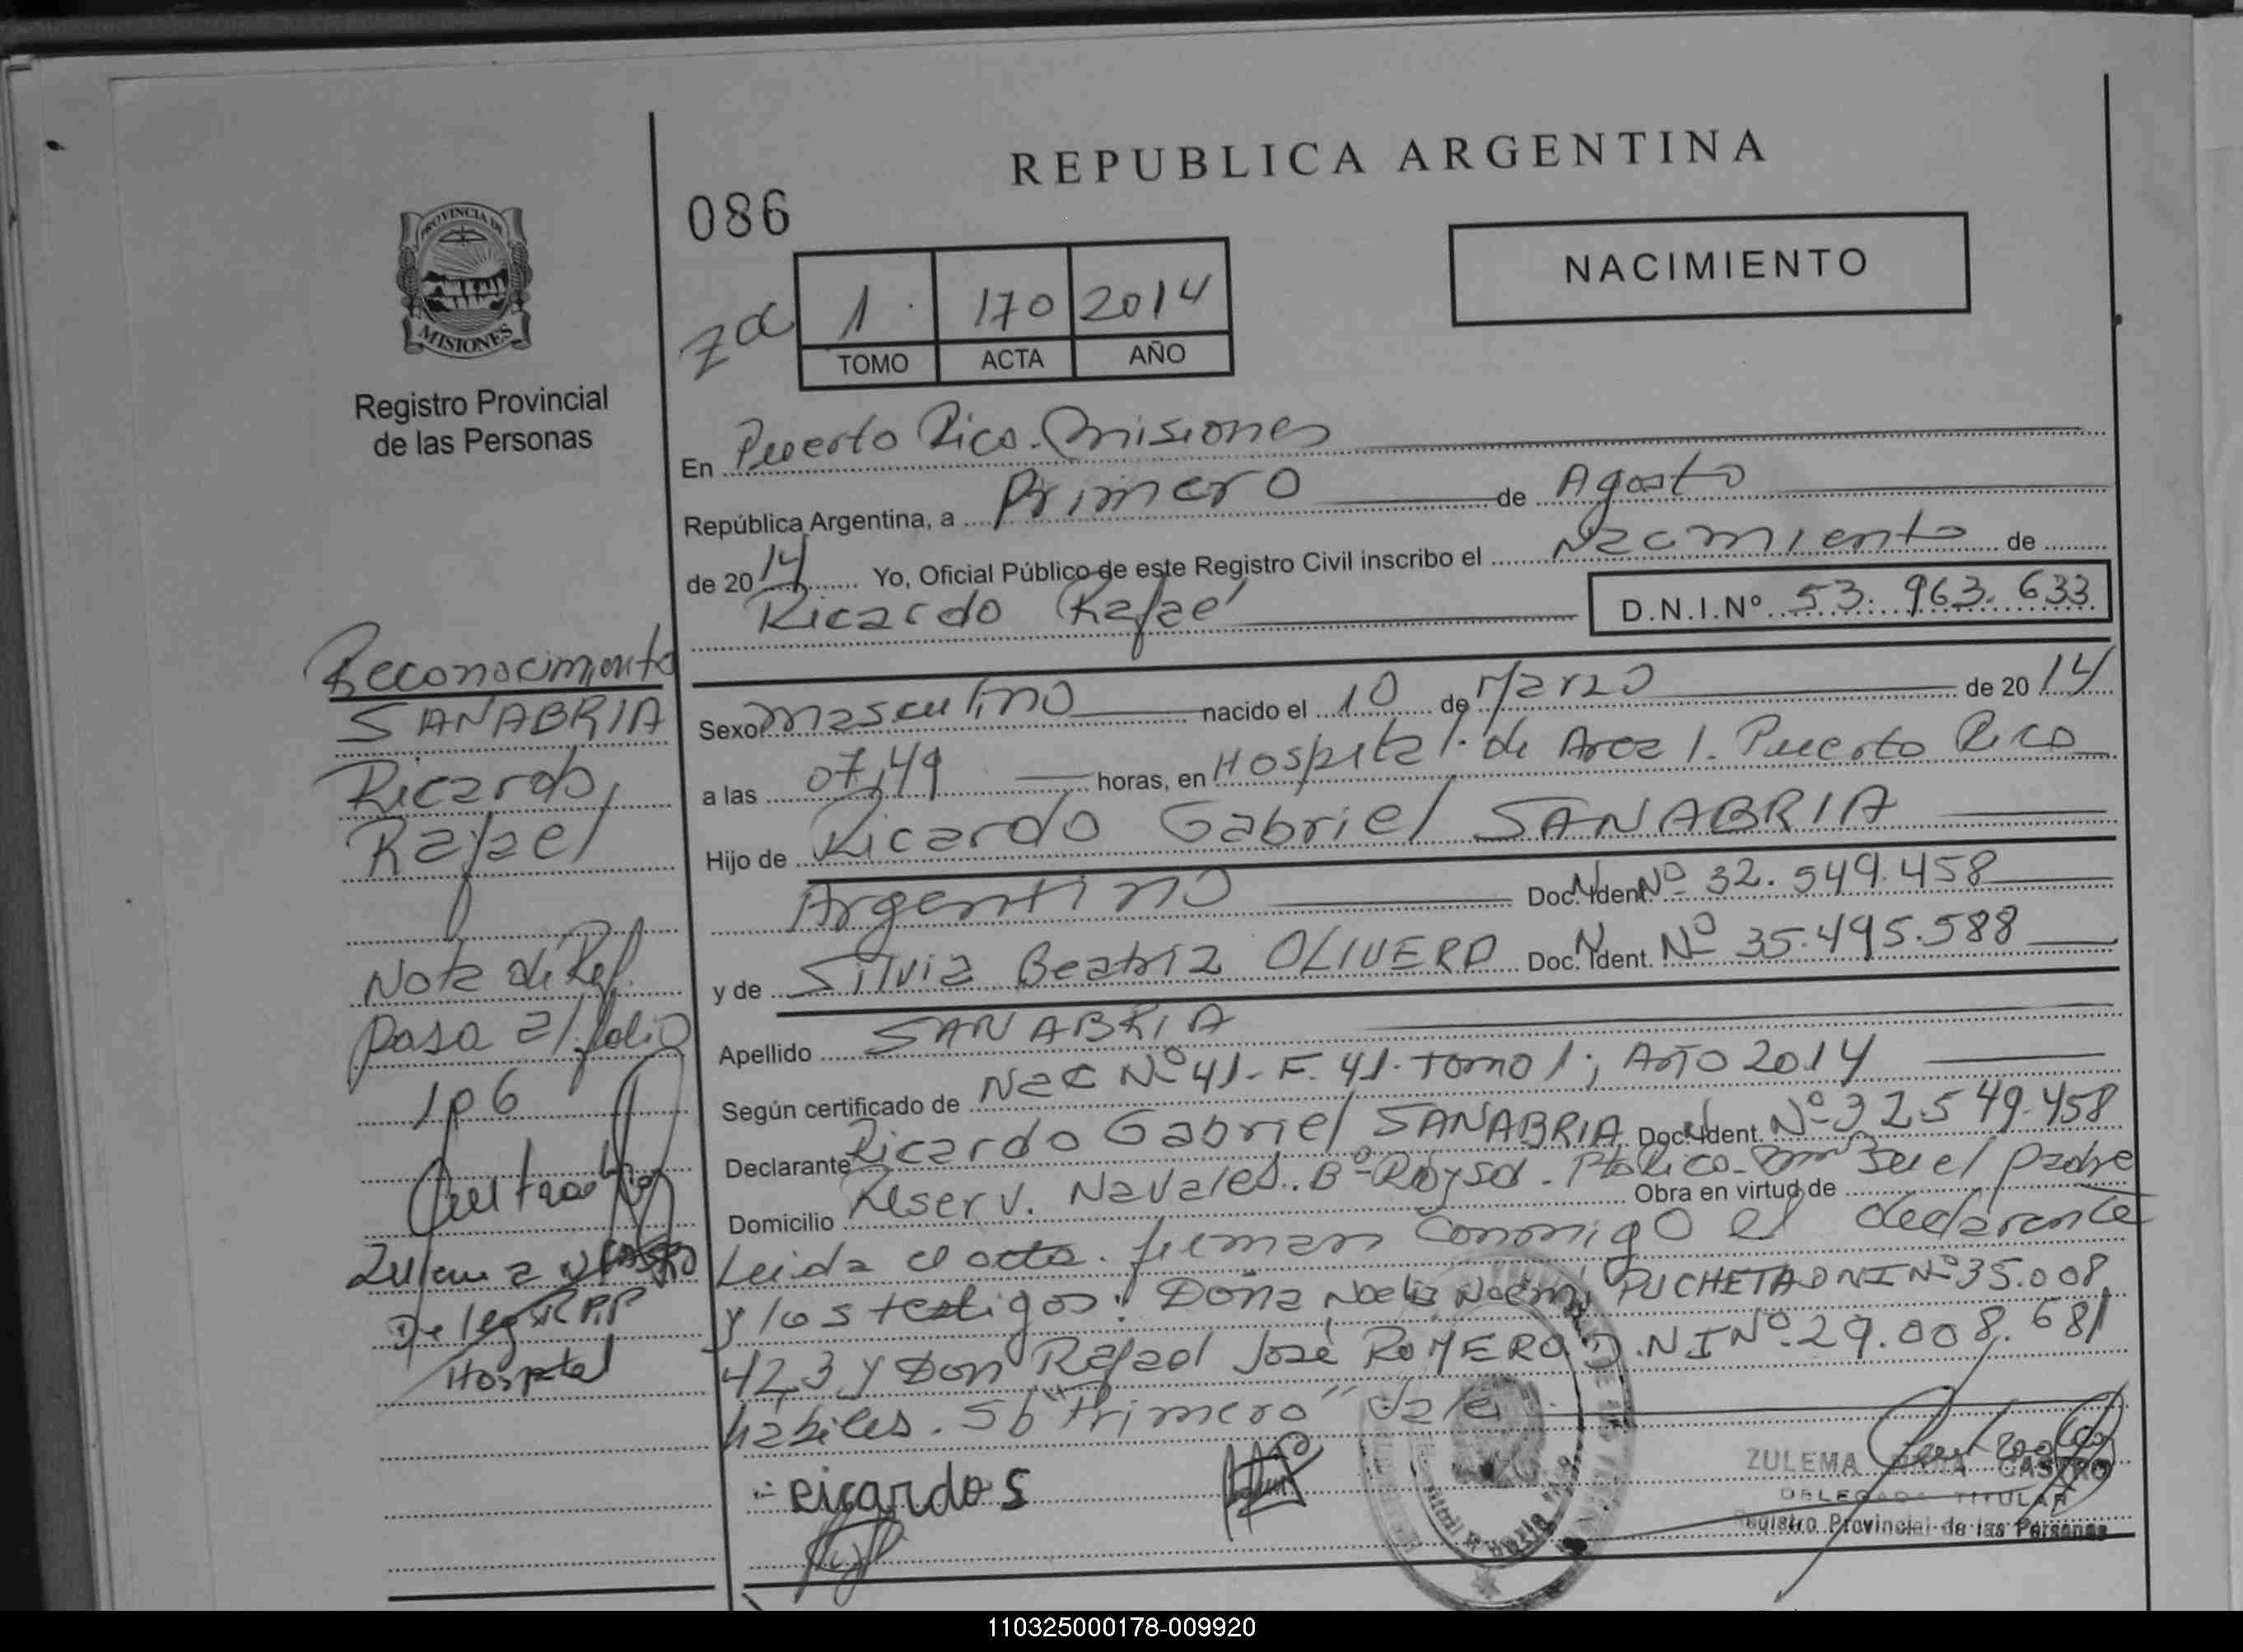 REPUBLICA ARGENTINA
086
NACIMIENTO
PROVINCIA DE
MISIONES
Registro Provincial
de las Personas
1 170 2014
TOMO ACTA AÑO
En Puerto Rico. Misiones
República Argentina, a Primero de Agosto
de 2014 Yo, Oficial Público de este Registro Civil inscribo el Nacimiento de
Ricardo Rafael
D.N.I.Nº 53.963.633
Sexo masculino nacido el 10 de Marzo de 2014
a las 07,49 horas, en Hospital de Area 1. Puerto Rico
Hijo de Ricardo Gabriel SANABRIA
Argentino Doc. Ident. Nº 32.549.458
y de Silvia Beatriz OLIVERA Doc. Ident. Nº 35.495.588
Apellido SANABRIA
Según certificado de Nac Nº 41- F. 41. Tomo 1; Año 2014
Declarante Ricardo Gabriel SANABRIA Doc. Ident. Nº 32.549.458
Domicilio Reserv. Navales. Bº Pto Rico Obra en virtud de Ser el padre
Leida el acta. firman conmigo el declarante
y los testigos: Doña Noelia Noemi PUCHETA DNI Nº 35.008.
423 y Don Rafael José ROMERO D.NI Nº 29.008.681
hábiles. Sb "Primero" vale
ricardo s
ZULEMA CASTRO
DELEGADA TITULAR
Registro Provincial de las Personas
Reconocimiento
SANABRIA
Ricardo
Rafael
Nota de Ref.
pasa al folio
106
Zulema
Deleg. RPP
Hospital
110325000178-009920